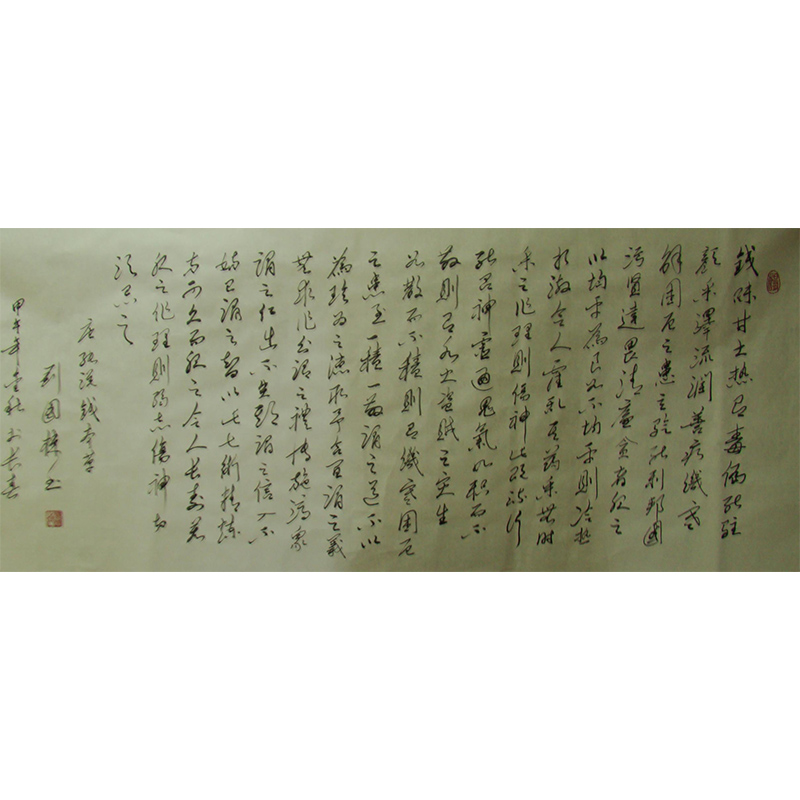 錢味甘大热有毒偏能駐
顏采澤流潤善疗饑寒
解困厄之患立验能利邦國
污賢達畏清廉貪者服之
以均平為良如不均平則冷热
相激令人霍乱其药采無时
采之非理則傷神此既流行
能召神靈通鬼氣如积而不
散則有水火盗賊之灾生
如散而不積則有饑寒困厄
之患至一積一散謂之道不以
為珍为之德取予合宜謂之義
無求非分謂之禮博施濟衆
謂之仁出不失期謂之信入不
妨己謂之智以此七術精煉
方可久而服之令人長壽若
服之非理則弱志傷神切
須忌之
唐張説錢本草
刘國書
甲午年金秋於長春